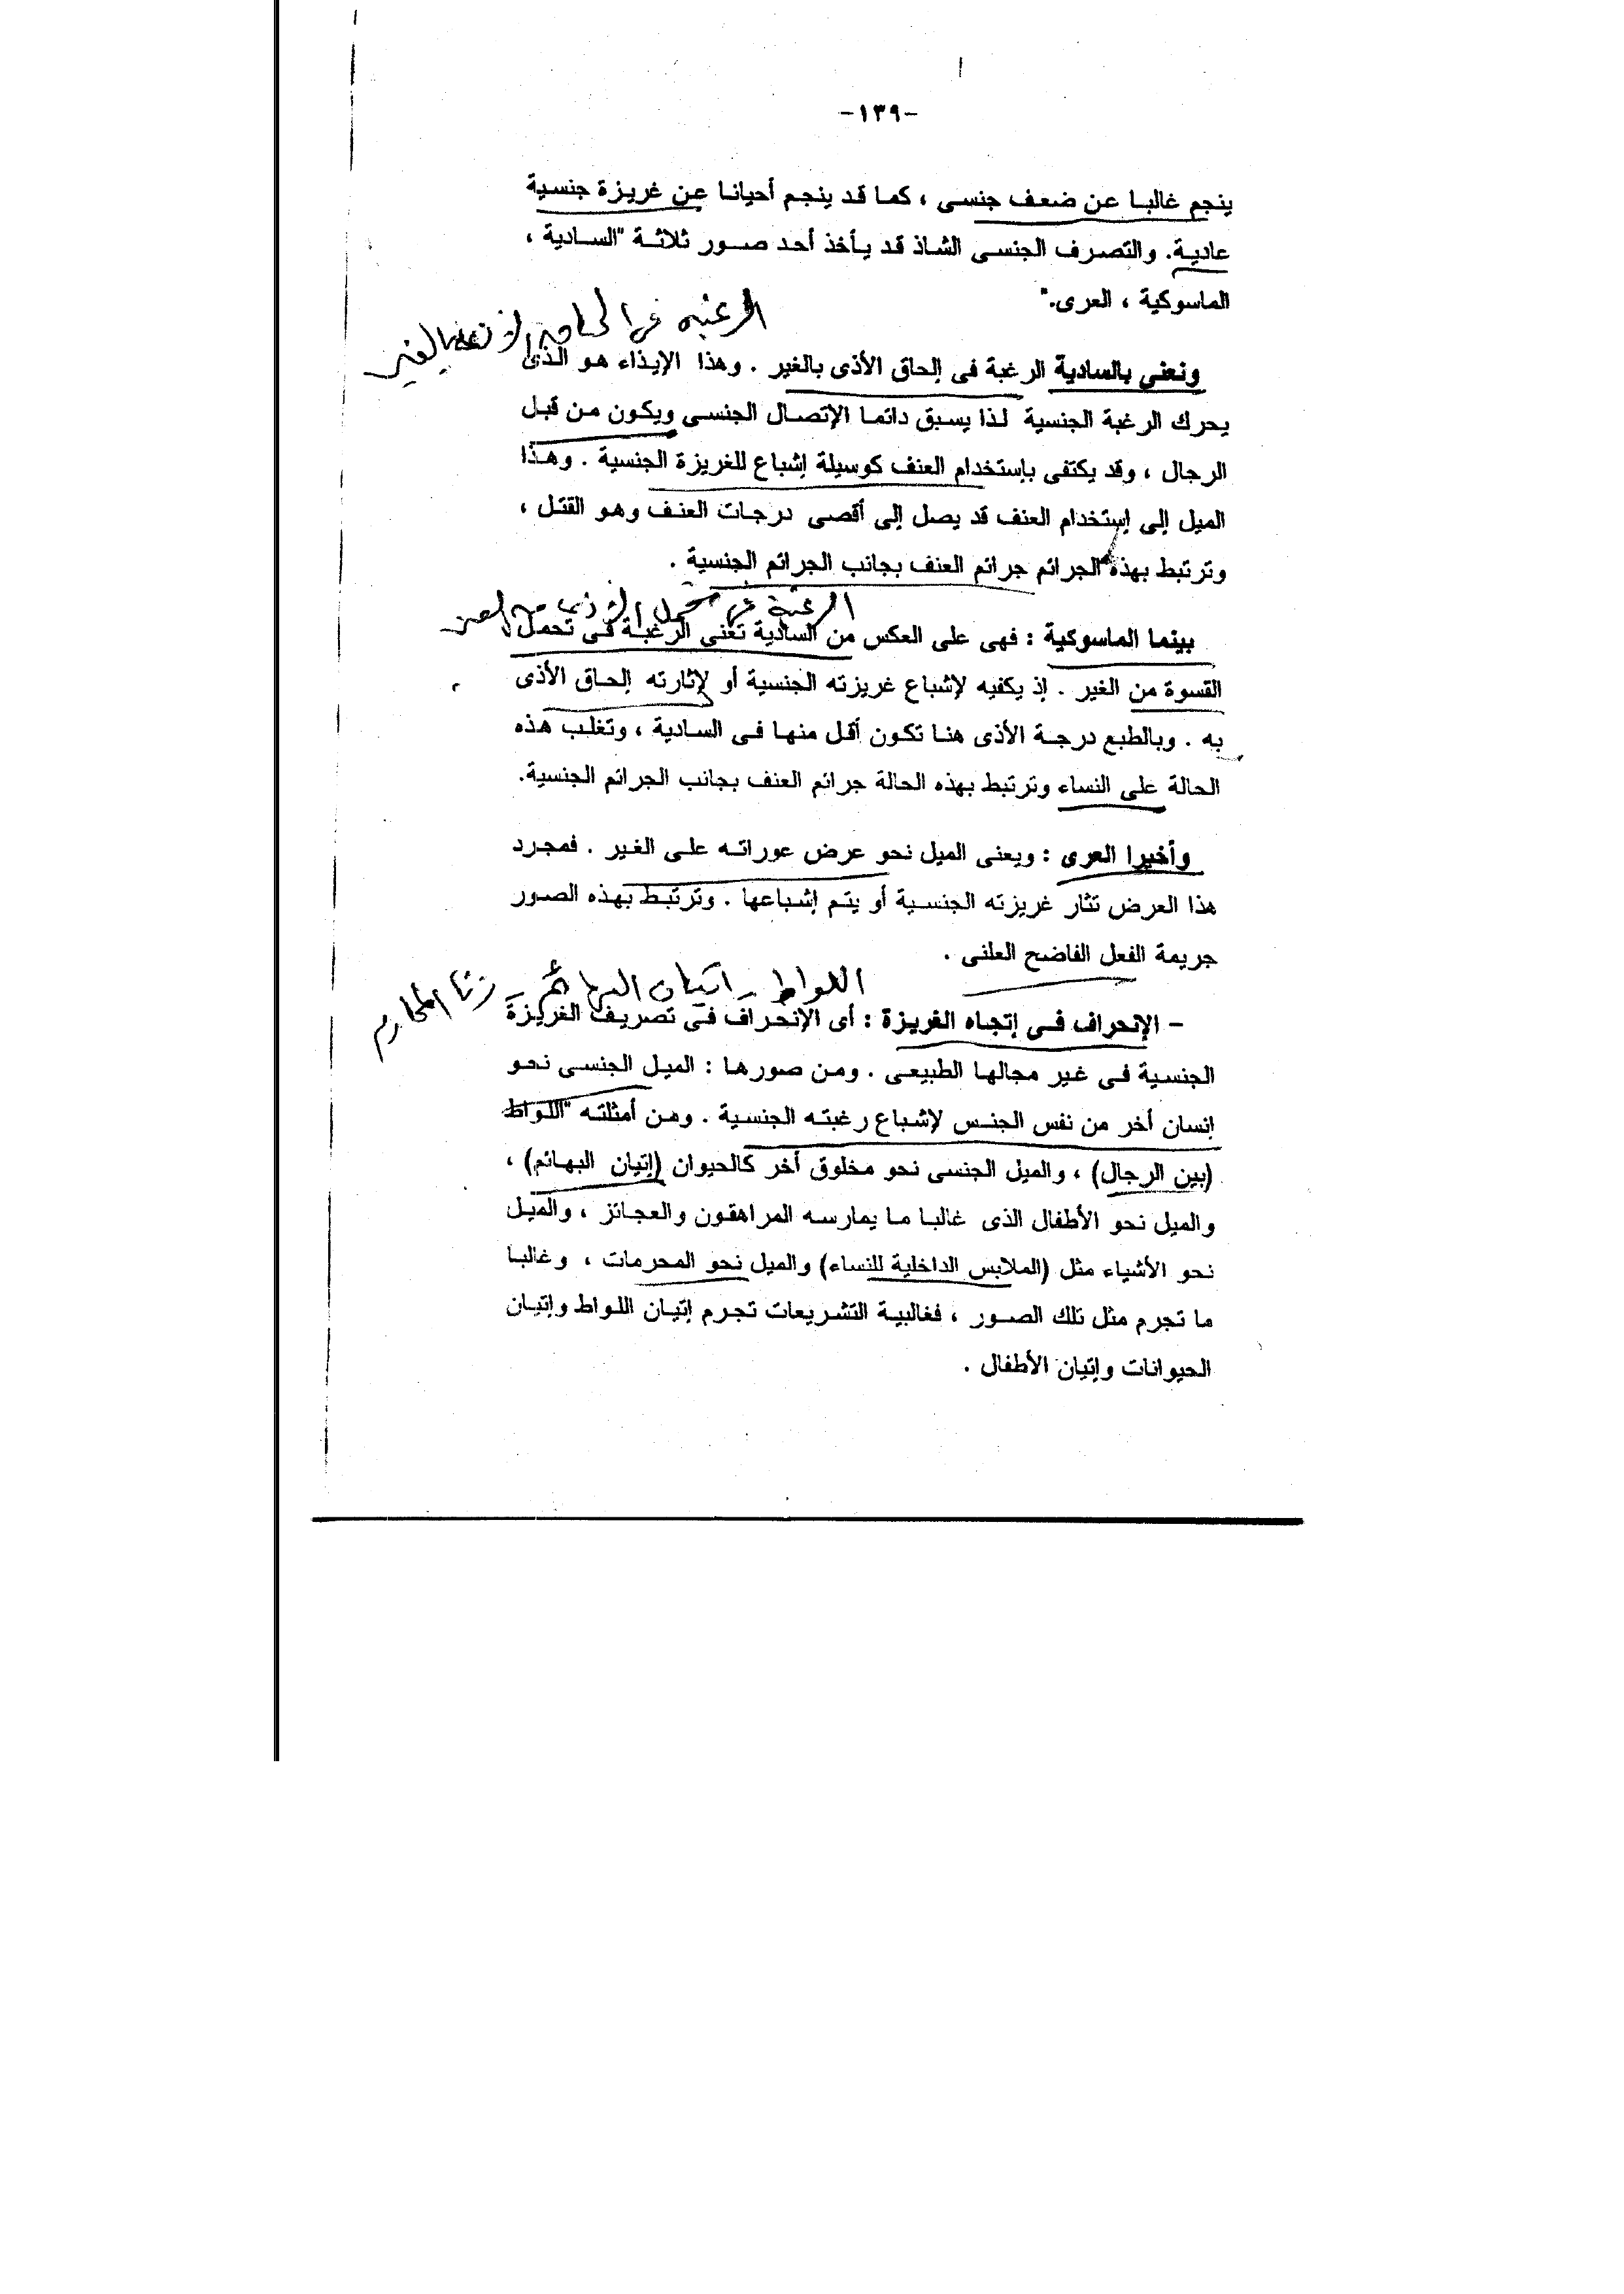 -١٣٩-
ينجم غالبا عن ضعف جنسى ، كما قد ينجم أحيانا عن غريزة جنسية
عادية. والتصرف الجنسى الشاذ قد يأخذ أحد صور ثلاثة "السادية ،
الماسوكية ، العرى."
الرغبه فى الحاق الاذى بالغير
ونعنى بالسادية الرغبة فى إلحاق الأذى بالغير . وهذا الإيذاء هو الذى
يحرك الرغبة الجنسية لذا يسبق دائما الإتصال الجنسى ويكون من قبل
الرجال ، وقد يكتفى بإستخدام العنف كوسيلة إشباع للغريزة الجنسية . وهذا
الميل إلى إستخدام العنف قد يصل إلى أقصى درجات العنف وهو القتل ،
وترتبط بهذه الجرائم جرائم العنف بجانب الجرائم الجنسية .
الرغبة فى تحمل الاذى من الغير
بينما الماسوكية : فهى على العكس من السادية تعنى الرغبة فى تحمل
القسوة من الغير . إذ يكفيه لإشباع غريزته الجنسية أو لإثارته إلحاق الأذى
به . وبالطبع درجة الأذى هنا تكون أقل منها فى السادية ، وتغلب هذه
الحالة على النساء وترتبط بهذه الحالة جرائم العنف بجانب الجرائم الجنسية.
وأخيرا العرى : ويعنى الميل نحو عرض عوراته على الغير . فمجرد
هذا العرض تثار غريزته الجنسية أو يتم إشباعها . وترتبط بهذه الصور
جريمة الفعل الفاضح العلنى .
اللواط - اتيان البهائم - زنا المحارم
- الإنحراف فى إتجاه الغريزة : أى الإنحراف فى تصريف الغريزة
الجنسية فى غير مجالها الطبيعى . ومن صورها : الميل الجنسى نحو
إنسان أخر من نفس الجنس لإشباع رغبته الجنسية . ومن أمثلته "اللواط
(بين الرجال) ، والميل الجنسى نحو مخلوق أخر كالحيوان (إتيان البهائم) ،
والميل نحو الأطفال الذى غالبا ما يمارسه المراهقون والعجائز ، والميل
نحو الأشياء مثل (الملابس الداخلية للنساء) والميل نحو المحرمات ، وغالبا
ما تجرم مثل تلك الصور ، فغالبية التشريعات تجرم إتيان اللواط وإتيان
الحيوانات وإتيان الأطفال .